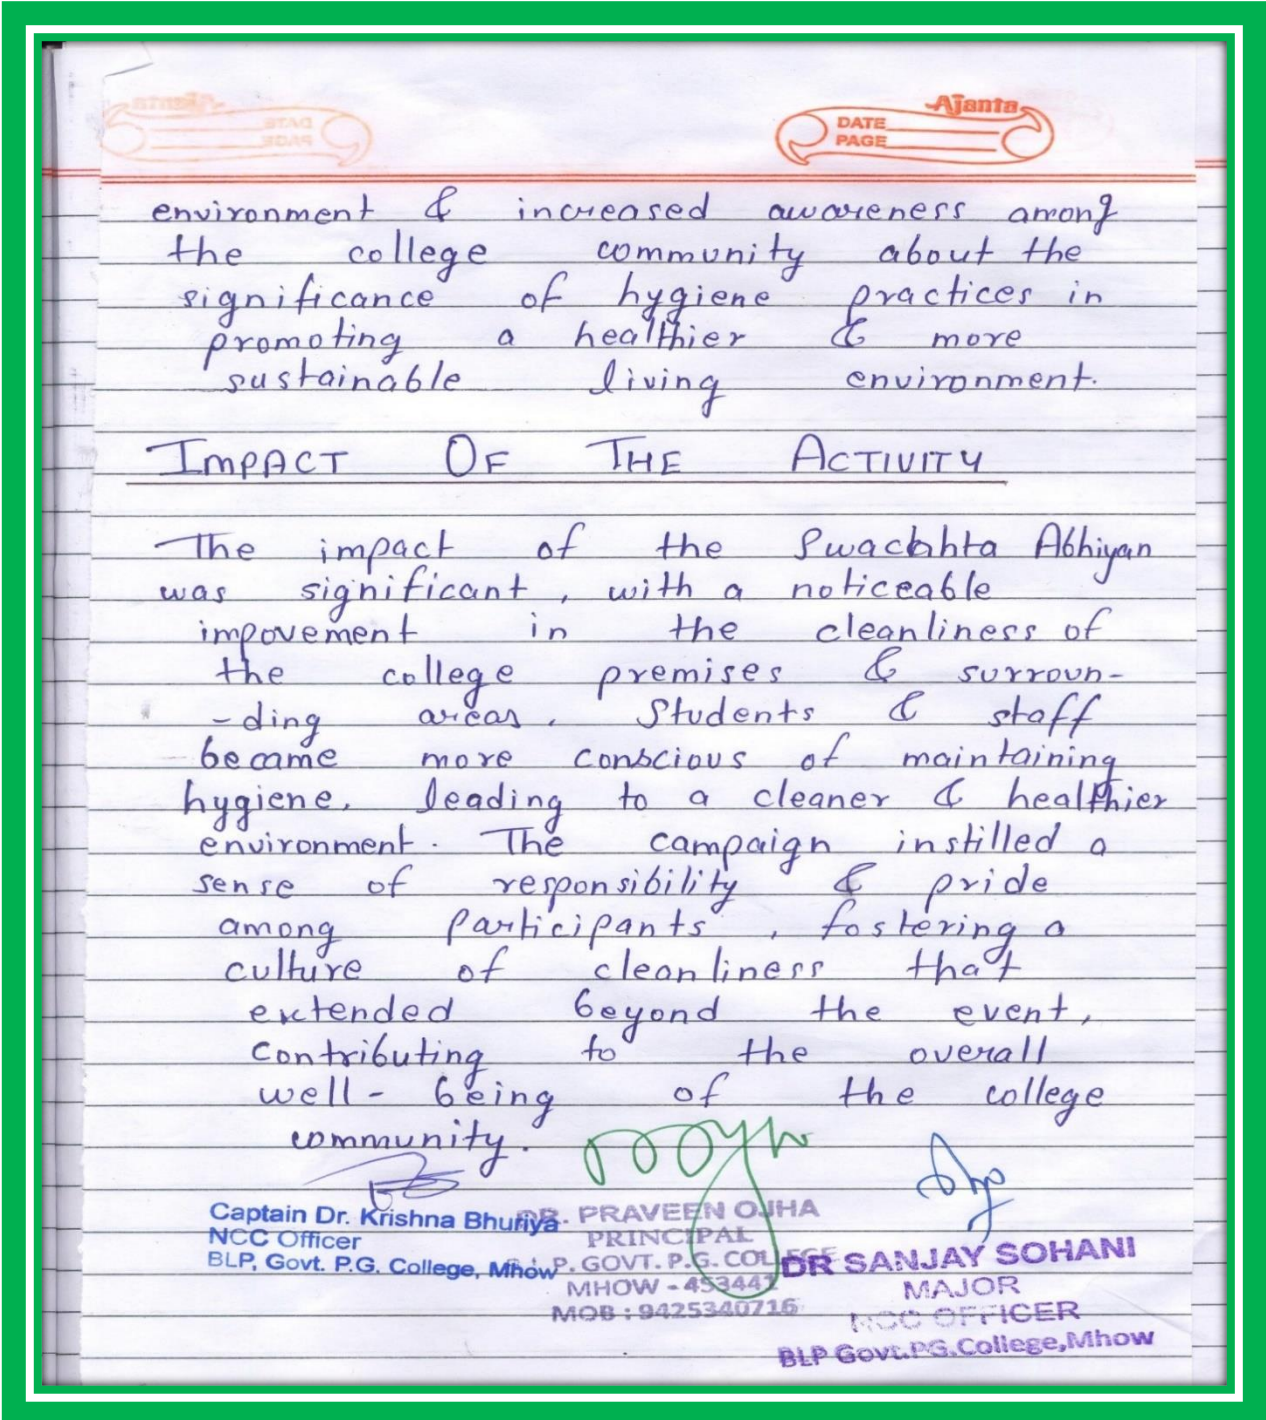 Ajanta
DATE
PAGE
environment & increased awareness among
the college community about the
significance of hygiene practices in
promoting a healthier & more
sustainable living environment.
IMPACT OF THE ACTIVITY
The impact of the Swachhta Abhiyan
was significant, with a noticeable
impovement in the cleanliness of
the college premises & surroun-
-ding areas. Students & staff
became more conscious of maintaining
hygiene, leading to a cleaner & healthier
environment. The campaign instilled a
sense of responsibility & pride
among participants, fostering a
culture of cleanliness that
extended beyond the event,
contributing to the overall
well-being of the college
community.
Captain Dr. Krishna Bhuriya
NCC Officer
BLP, Govt. P.G. College, Mhow
DR. PRAVEEN OJHA
PRINCIPAL
B.L.P. GOVT. P.G. COLLEGE
MHOW - 453441
MOB : 9425340716
DR SANJAY SOHANI
MAJOR
NCC OFFICER
BLP Govt.PG.College,Mhow